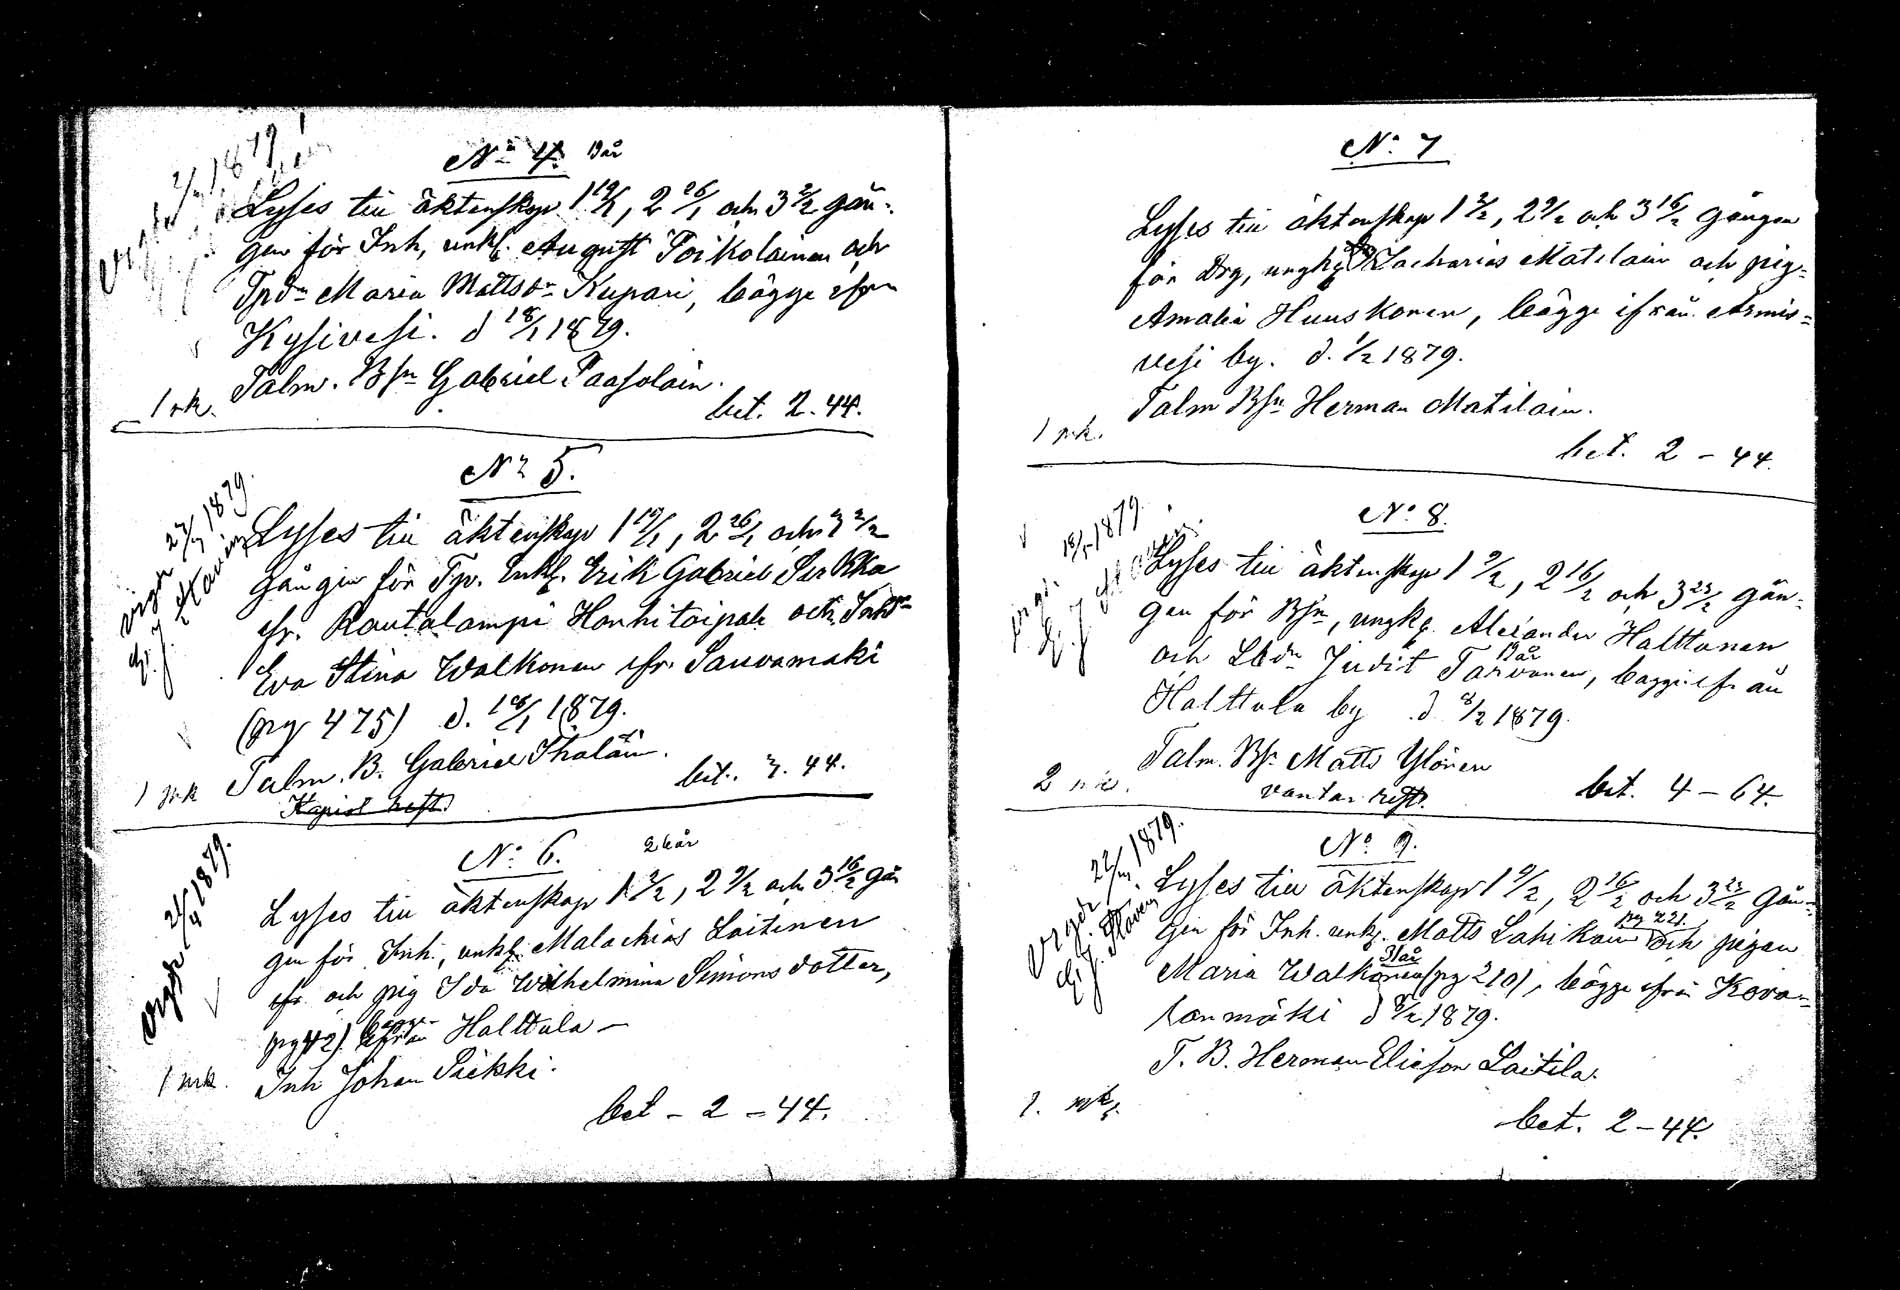 No 4. 19 år
Lyses till äktenskap 1 19/1, 2 26/1 och 3 2/2 gån-
gen för Inh, unkl. August Poikolainen och
Tpdr Maria Mattsdr Kupari, bägge ifrn
Kysivesi. d 18/1 1879.
Talm. Bsn Gabriel Paasolain.
1 mk. bet. 2.44.
No 5.
virgde 27/3 1879.
Lyses till äktenskap 1 19/1, 2 26/1 och 3 2/2
gången för Tp. Enkl. Erik Gabriel Sirkka
ifr. Rautalampi Hanhitaipale och Inhdr
Eva Stina Walkonen ifr. Sauvamäki
(pag 475) d. 18/1 1879.
Talm. B. Gabriel Ihalain.
1 mk bet. 2.44.
No 6. 26 år
Lyses till äktenskap 1 2/2, 2 9/2 och 3 16/2 gån
gen för Inh., unkl. Malachias Laitinen
ifr och pig Ida Wilhelmina Simonsdotter,
pag 42). bägge ifrån Halttula –
Inh Johan Piekki.
1 mk. bet – 2 – 44.
No 7
Lyses till äktenskap 1 2/2, 2 9/2 och 3 16/2 gången
för Drg, ungkg Zacharias Matilain och pig-
Amalia Huuskonen, bägge ifrån Armis-
vesi by. d. 1/2 1879.
Talm Bsn Herman Matilain.
1 mk. bet. 2 – 44.
No 8.
1879.
Lyses till äktenskap 1 9/2, 2 16/2 och 3 23/2 gån-
gen för Bsn, ungkg. Alexander Halttunen
och Lbdr Judit Tarvonen, 19 år bägge ifrån
Halttula by d 8/2 1879.
Talm. Bsn Matts Ylönen
2 mk. bet. 4 – 64.
No 9.
vigde 1879.
Lyses till äktenskap 1 9/2, 2 16/2 och 3 23/2 gån-
gen för Inh. unkl. Matts Lahikain pag 221. och pigan
Maria Walkonen 31 år (pag 210), bägge ifrån Kova-
lanmäki d 8/2 1879.
T. B. Herman Eliasson Laitila.
1. mk. bet. 2 – 44.